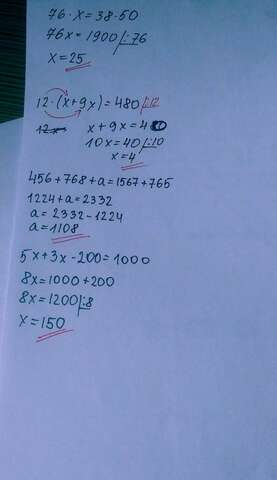 76 · x = 38 · 50
76x = 1900 |:76
x = 25
12 · (x+9x) = 480 |:12
x + 9x = 40
10x = 40 |:10
x = 4
456 + 768 + a = 1567 + 765
1224 + a = 2332
a = 2332 - 1224
a = 1108
5x + 3x - 200 = 1000
8x = 1000 + 200
8x = 1200 |:8
x = 150